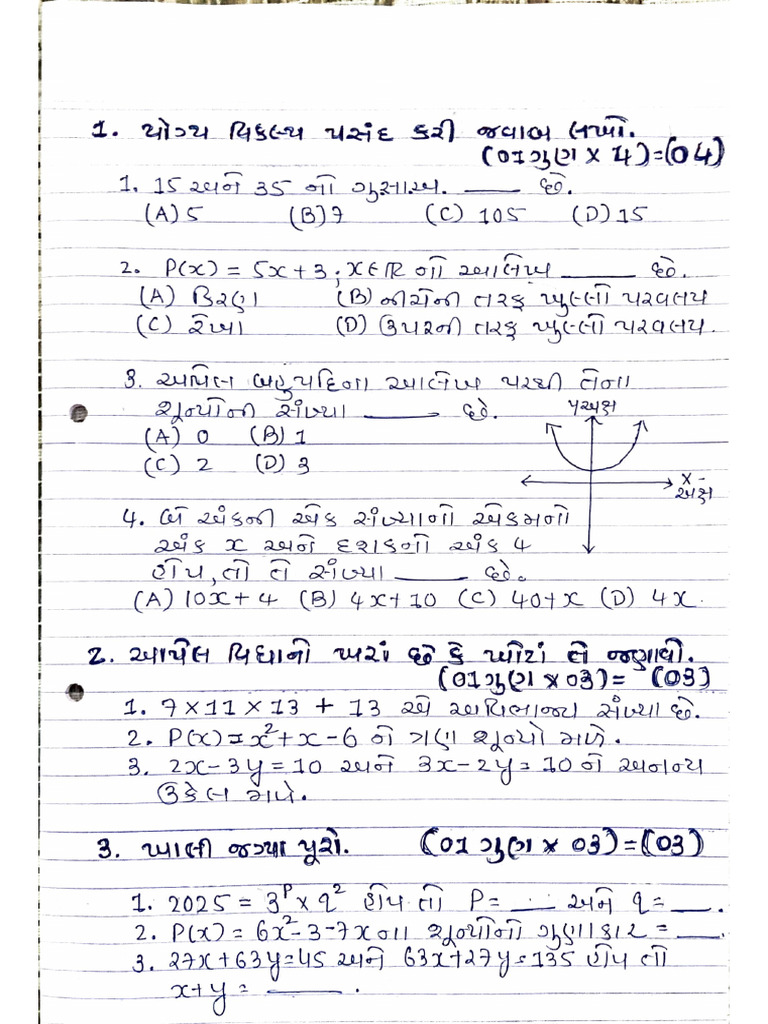 1. યોગ્ય વિકલ્પ પસંદ કરી જવાબ લખો.
(01 ગુણ × 4) = (04)
1. 15 અને 35 નો ગુ.સા.અ. ____ છે.
(A) 5 (B) 7 (C) 105 (D) 15
2. P(x) = 5x + 3 ; x∈R નો આલેખ ____ છે.
(A) કિરણ (B) નીચેની તરફ ખુલ્લો પરવલય
(C) રેખા (D) ઉપરની તરફ ખુલ્લો પરવલય.
3. આપેલ બહુપદિના આલેખ પરથી તેના
શૂન્યોની સંખ્યા ____ છે.
(A) 0 (B) 1
(C) 2 (D) 3
y અક્ષ
x -
અક્ષ
4. બે અંકની એક સંખ્યાનો એકમનો
અંક x અને દશકનો અંક 4
હોય, તો તે સંખ્યા ____ છે.
(A) 10x + 4 (B) 4x + 10 (C) 40 + x (D) 4x.
2. આપેલ વિધાનો ખરાં છે કે ખોટાં તે જણાવો.
(01 ગુણ × 03) = (03)
1. 7 × 11 × 13 + 13 એ અવિભાજ્ય સંખ્યા છે.
2. P(x) = x² + x - 6 ને ત્રણ શૂન્યો મળે.
3. 2x - 3y = 10 અને 3x - 2y = 10 ને અનન્ય
ઉકેલ મળે.
3. ખાલી જગ્યા પૂરો. (01 ગુણ × 03) = (03)
1. 2025 = 3^p × q² હોય તો P = ___ અને q = ___.
2. P(x) = 6x² - 3 - 7x ના શૂન્યોનો ગુણાકાર = ___.
3. 27x + 63y = 45 અને 63x + 27y = 135 હોય તો
x + y = ____.